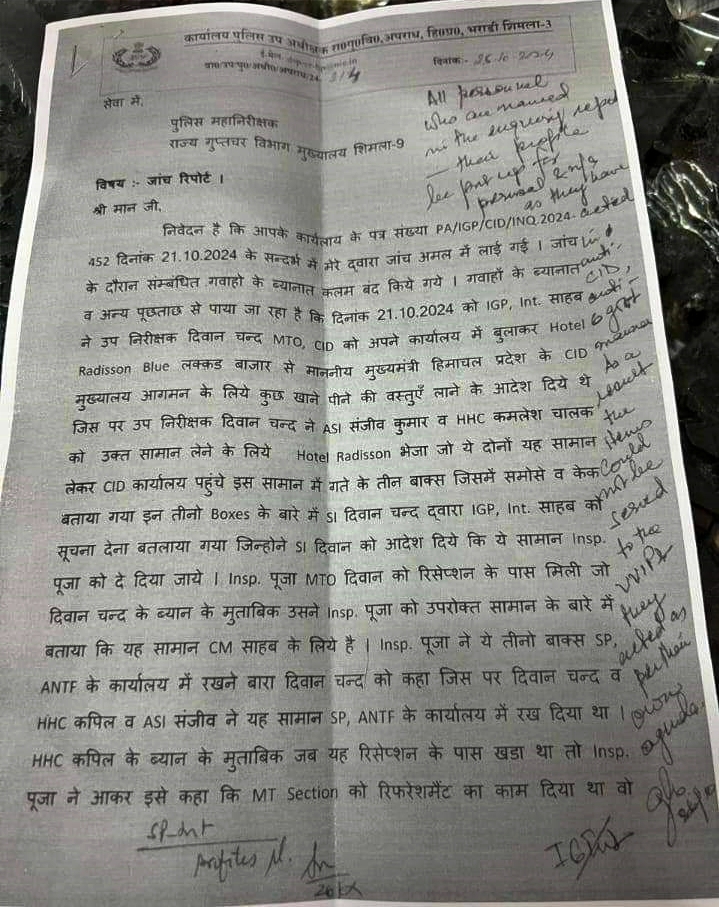 कार्यालय पुलिस उप अधीक्षक रा०गु०वि०,अपराध, हि०प्र०, भराडी शिमला-3
दिनांक:- 25-10-2024
सेवा में,
पुलिस महानिरीक्षक
राज्य गुप्तचर विभाग मुख्यालय शिमला-9
विषय :- जांच रिपोर्ट ।
श्री मान जी,
निवेदन है कि आपके कार्यालय के पत्र संख्या PA/IGP/CID/INQ.2024.
452 दिनांक 21.10.2024 के सन्दर्भ में मेरे दवारा जांच अमल में लाई गई । जांच
के दौरान सम्बंधित गवाहो के ब्यानात कलम बंद किये गये । गवाहों के ब्यानात
व अन्य पूछताछ से पाया जा रहा है कि दिनांक 21.10.2024 को IGP, Int. साहब
ने उप निरीक्षक दिवान चन्द MTO, CID को अपने कार्यालय में बुलाकर Hotel
Radisson Blue लक्कड बाजार से माननीय मुख्यमंत्री हिमाचल प्रदेश के CID
मुख्यालय आगमन के लिये कुछ खाने पीने की वस्तुएँ लाने के आदेश दिये थे
जिस पर उप निरीक्षक दिवान चन्द ने ASI संजीव कुमार व HHC कमलेश चालक
को उक्त सामान लेने के लिये Hotel Radisson भेजा जो ये दोनों यह सामान
लेकर CID कार्यालय पहुंचे इस सामान में गते के तीन बाक्स जिसमें समोसे व केक
बताया गया इन तीनो Boxes के बारे में SI दिवान चन्द दवारा IGP, Int. साहब को
सूचना देना बतलाया गया जिन्होने SI दिवान को आदेश दिये कि ये सामान Insp.
पूजा को दे दिया जाये । Insp. पूजा MTO दिवान को रिसेप्शन के पास मिली जो
दिवान चन्द के ब्यान के मुताबिक उसने Insp. पूजा को उपरोक्त सामान के बारे में
बताया कि यह सामान CM साहब के लिये है । Insp. पूजा ने ये तीनो बाक्स SP,
ANTF के कार्यालय में रखने बारा दिवान चन्द को कहा जिस पर दिवान चन्द व
HHC कपिल व ASI संजीव ने यह सामान SP, ANTF के कार्यालय में रख दिया था ।
HHC कपिल के ब्यान के मुताबिक जब यह रिसेप्शन के पास खडा था तो Insp.
पूजा ने आकर इसे कहा कि MT Section को रिफरेशमैंट का काम दिया था वो
All personnel
who are named
in the enquiry report
their profile
be put up for
perusal & n/a
as they have
acted
in
anti-
CID,
anti-
govt
manner
As a
result
the
items
could
not be
served
to the
VVIPs
they
acted as
per their
own
agenda.